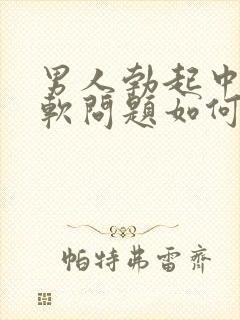 男人勃起中
軟問題如何
帕特弗雷齊